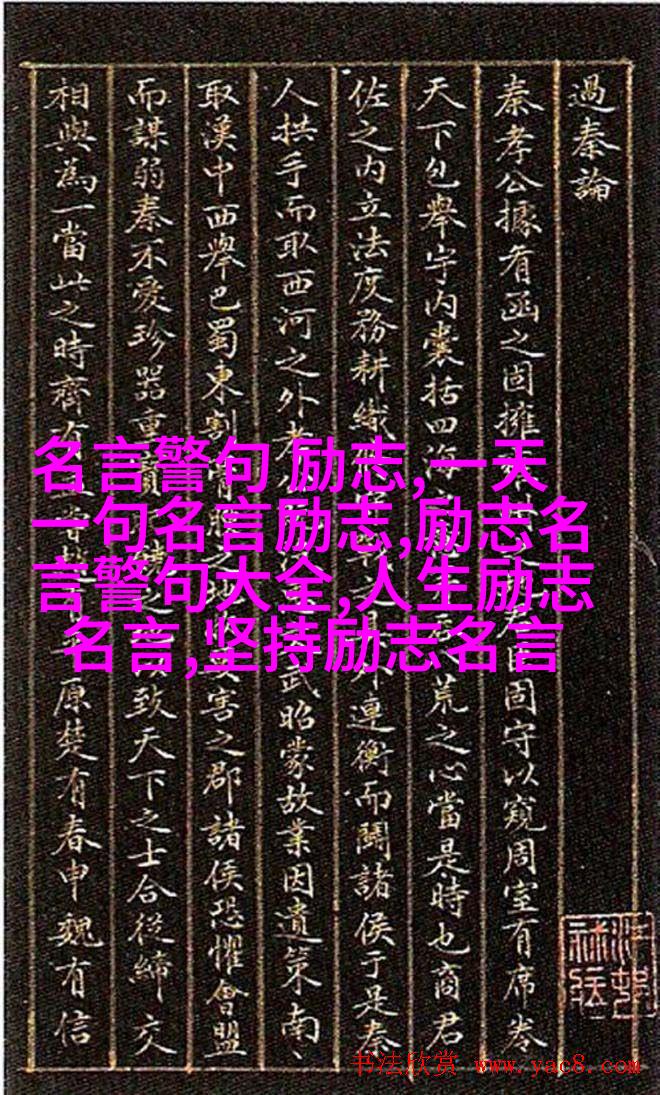 過秦論
秦孝公據有函之固擁君臣固守以窺周室有席卷
天下包舉宇内囊括四海荒之心當是時也商君
佐之内立法度務耕織外連衡而鬪諸侯于是秦
人拱手而取西河之外武昭蒙故業因遺策南
取漢中西舉巴蜀東割害之郡諸侯恐懼會盟
而謀弱秦不愛珍器重致天下之士合從締交
相與為一當此之時齊有原楚有春申魏有信
名言警句 励志,一天
一句名言励志,励志名
言警句大全,人生励志
名言,坚持励志名言
书法欣赏 www.yac8.com